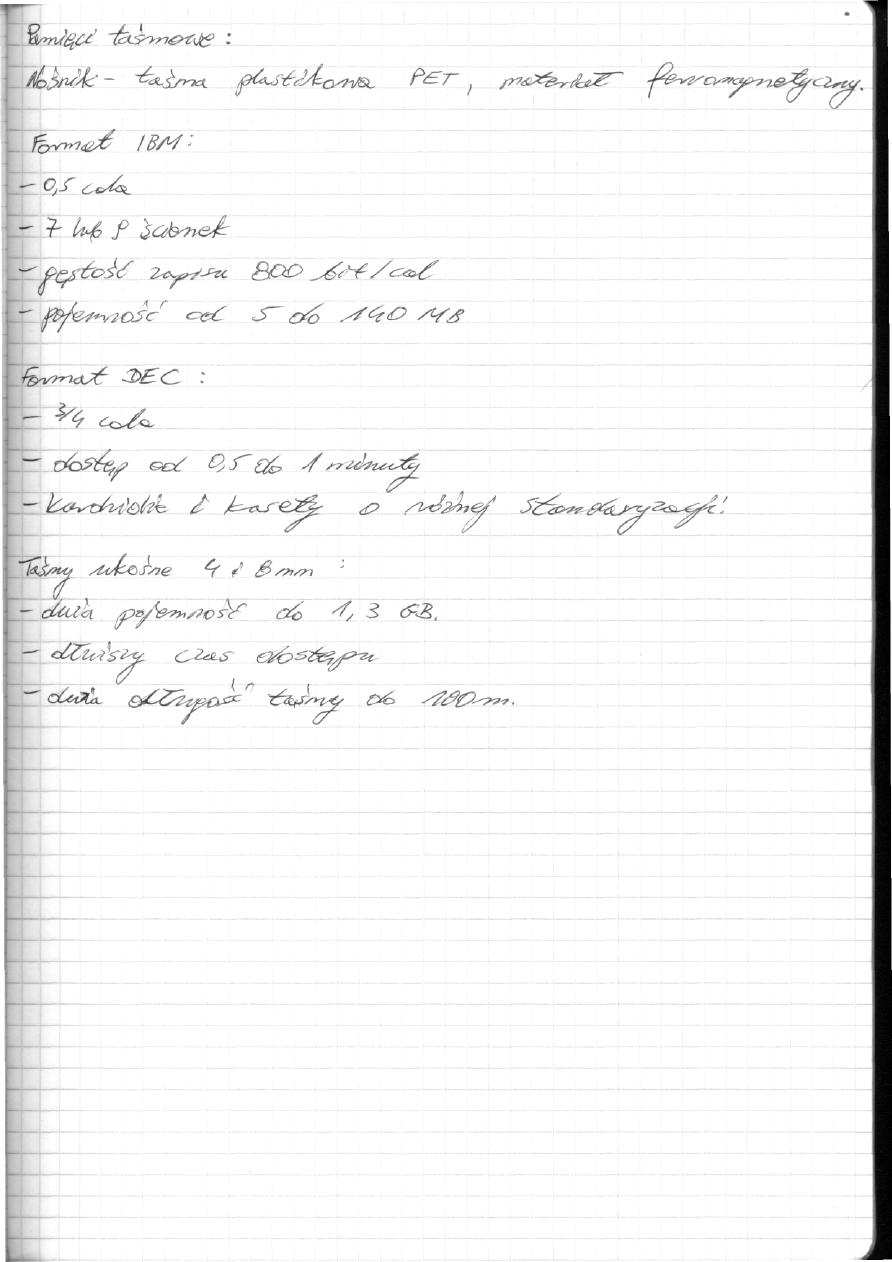 Pamięci taśmowe :
Nośnik - taśma plastikowa PET, materiał ferromagnetyczny.
Format IBM:
- 0,5 cala
- 7 lub 9 ścianek
- gęstość zapisu 800 bit/cal
- pojemność od 5 do 140 MB
Format DEC :
- 3/4 cala
- dostęp od 0,5 do 1 minuty
- i kasety o różnej standaryzacji.
Taśmy ukośne 4 i 8 mm :
- duża pojemność do 1,3 GB.
- dłuższy czas dostępu
- duża długość taśmy do 100 m.